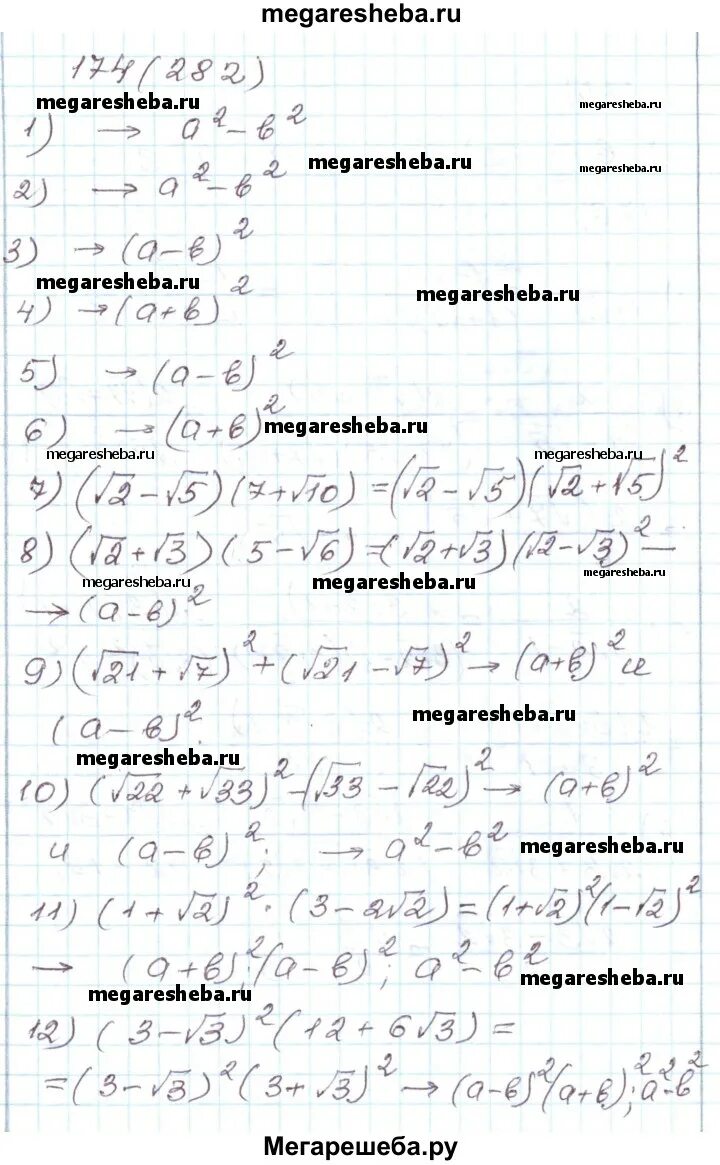 megaresheba.ru
174(282)
megaresheba.ru megaresheba.ru
1) → a² - b²
megaresheba.ru megaresheba.ru
2) → a² - b²
3) → (a - b)²
megaresheba.ru megaresheba.ru
4) → (a + b)²
5) → (a - b)²
6) → (a + b)² megaresheba.ru
megaresheba.ru megaresheba.ru
7) (√2 - √5)(7 + √10) = (√2 - √5)(√2 + √5)²
8) (√2 + √3)(5 - √6) = (√2 + √3)(√2 - √3)² —
megaresheba.ru megaresheba.ru megaresheba.ru
→ (a - b)²
9) (√21 + √7)² + (√21 - √7)² → (a + b)² и
(a - b)². megaresheba.ru
megaresheba.ru
10) (√22 + √33)² - (√33 - √22)² → (a + b)²
и (a - b)²; → a² - b² megaresheba.ru
11) (1 + √2)² · (3 - 2√2) = (1 + √2)²(1 - √2)²
→ (a + b)²; (a - b)²; a² - b²
megaresheba.ru megaresheba.ru
12) (3 - √3)²(12 + 6√3) =
= (3 - √3)²(3 + √3)² → (a - b)²(a + b)²; a² - b²
Мегарешеба.ру